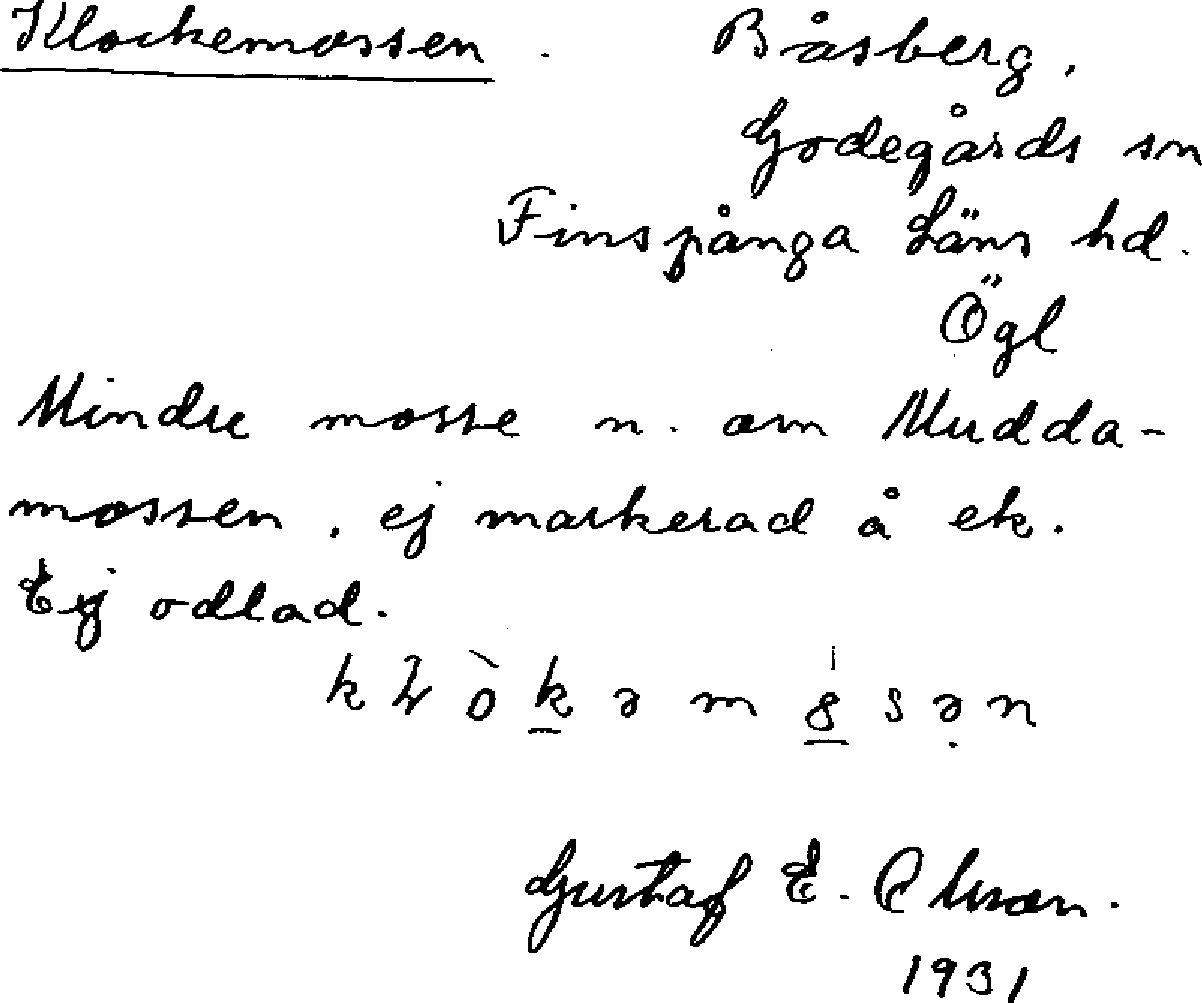 Klockemossen. Båsberg,
Godegårds sn
Finspånga Läns hd.
Ögl
Mindre mosse n. om Mudda-
mossen, ej markerad å ek.
Ej odlad.
Gustaf E. Olsson.
1931